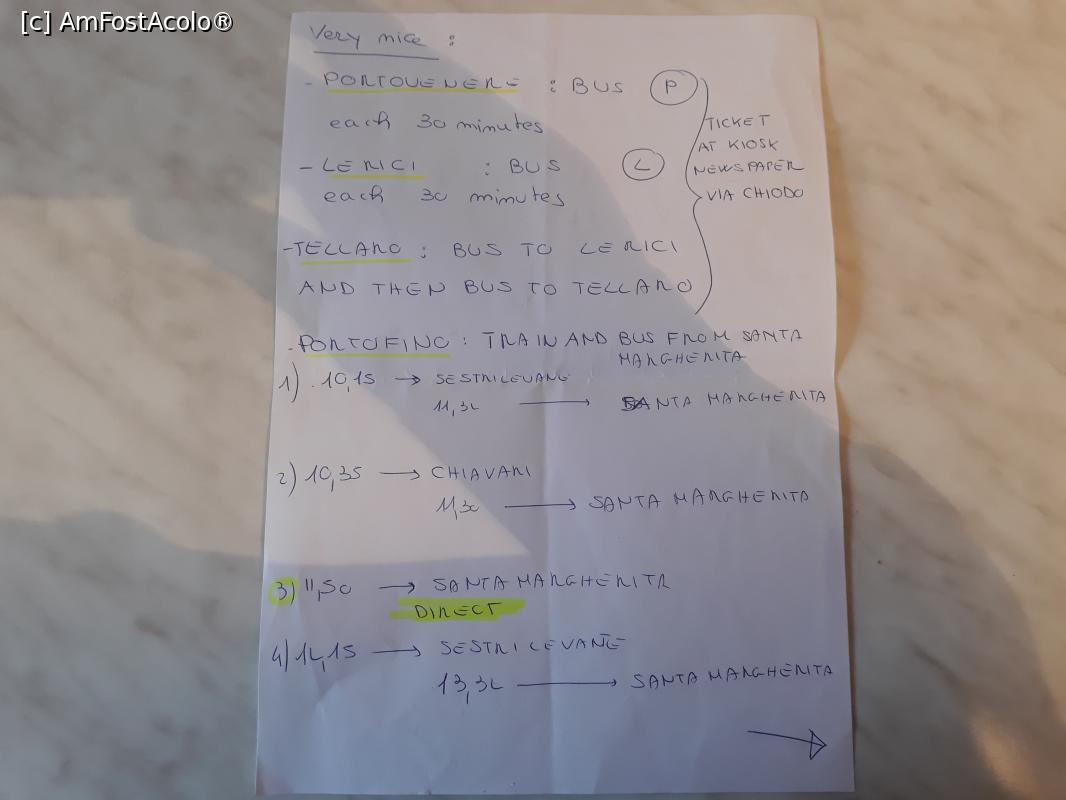 [c] AmFostAcolo®
Very nice :
- PORTOVENERE : BUS P
each 30 minutes
- LERICI : BUS L
each 30 minutes
TICKET
AT KIOSK
NEWSPAPER
VIA CHIODO
- TELLARO : BUS TO LERICI
AND THEN BUS TO TELLARO
- PORTOFINO : TRAIN AND BUS FROM SANTA
MARGHERITA
1) 10,15 → SESTRI LEVANTE
11,32 → SANTA MARGHERITA
2) 10,35 → CHIAVARI
11,30 → SANTA MARGHERITA
3) 11,50 → SANTA MARGHERITA
DIRECT
4) 12,15 → SESTRI LEVANTE
13,32 → SANTA MARGHERITA